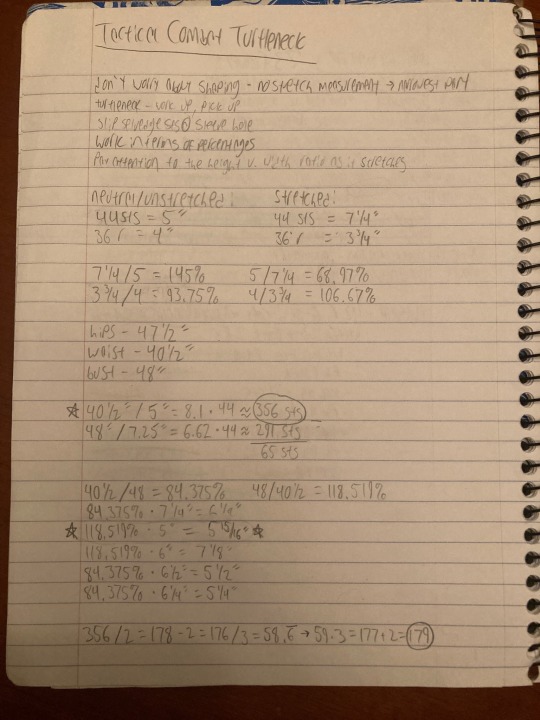 Tactical Combat Turtleneck
don't worry about shaping - no stretch measurement → narrowest part
turtleneck - work up, pick up
slip selvedge sts @ sleeve hole
work in terms of percentages
Pay attention to the height v. width ratio as it stretches
neutral/unstretched: stretched:
44 sts = 5" 44 sts = 7 1/4"
36 r = 4" 36 r = 3 3/4"
7 1/4 / 5 = 145% 5 / 7 1/4 = 68.97%
3 3/4 / 4 = 93.75% 4 / 3 3/4 = 106.67%
hips - 47 1/2"
waist - 40 1/2"
bust - 48"
☆ 40 1/2" / 5" = 8.1 · 44 ≈ 356 sts
48" / 7.25" = 6.62 · 44 ≈ 291 sts
65 sts
40 1/2 / 48 = 84.375% 48 / 40 1/2 = 118.519%
84.375% · 7 1/4" = 6 1/8"
☆ 118.519% · 5" = 5 15/16" ☆
118.519% · 6" = 7 1/8"
84.375% · 6 1/2" = 5 1/2"
84.375% · 6 1/4" = 5 1/4"
356/2 = 178 - 2 = 176/3 = 58.6̅ → 59 · 3 = 177 + 2 = 179